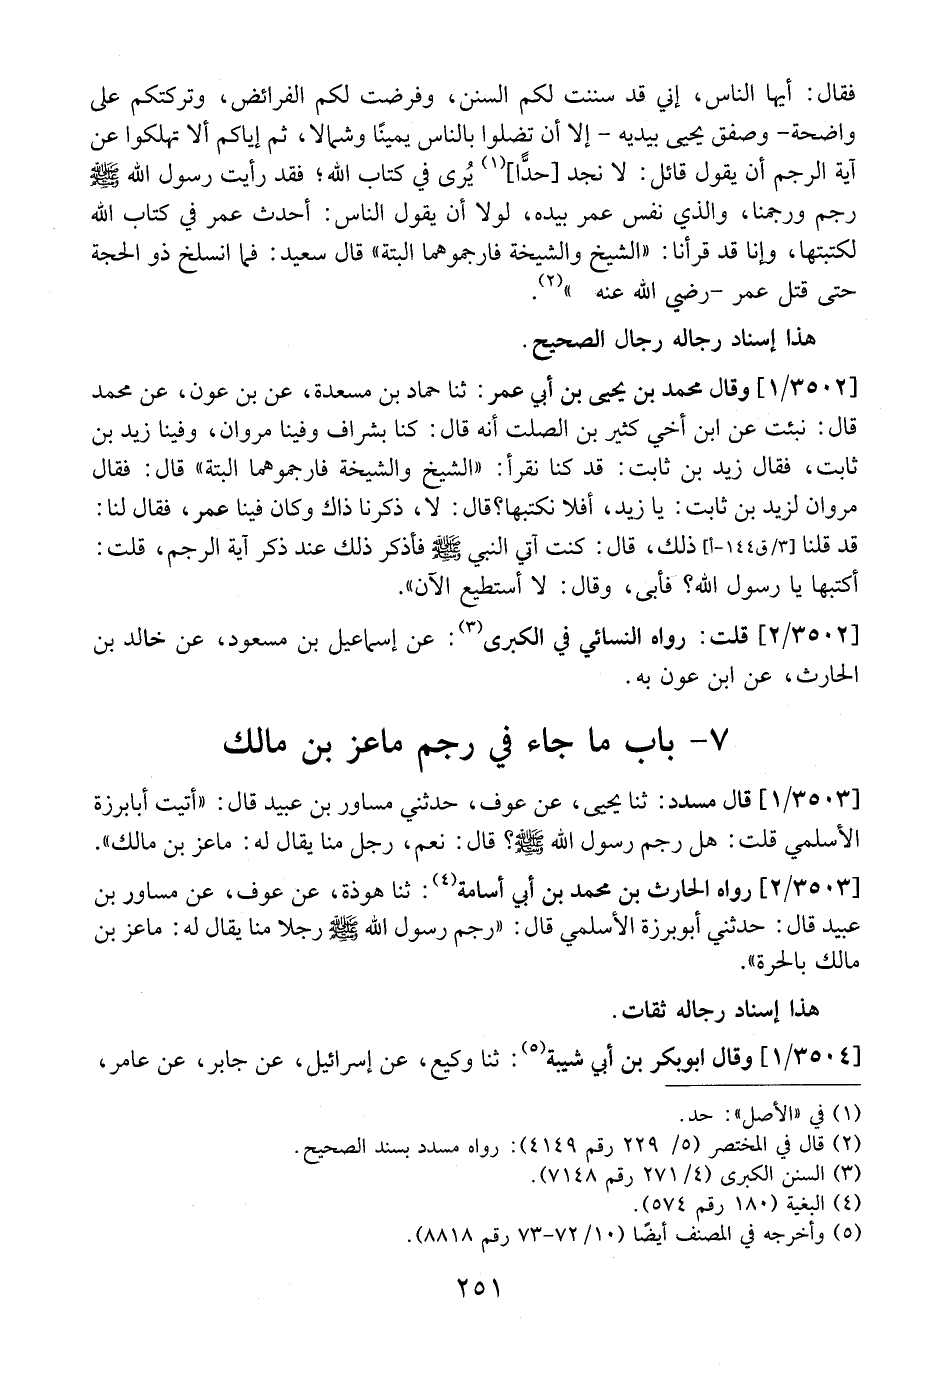 فقال: أيها الناس، إني قد سننت لكم السنن، وفرضت لكم الفرائض، وتركتكم على
واضحة- وصفق يحيى بيديه - إلا أن تضلوا بالناس يمينًا وشمالا، ثم إياكم ألا تهلكوا عن
آية الرجم أن يقول قائل: لا نجد [حدًّا](١) يُرى في كتاب الله؛ فقد رأيت رسول الله ﷺ
رجم ورجمنا، والذي نفس عمر بيده، لولا أن يقول الناس: أحدث عمر في كتاب الله
لكتبتها، وإنا قد قرأنا: «الشيخ والشيخة فارجموهما البتة» قال سعيد: فما انسلخ ذو الحجة
حتى قتل عمر -رضي الله عنه »(٢).
هذا إسناد رجاله رجال الصحيح.
[١/٣٥٠٢] وقال محمد بن يحيى بن أبي عمر: ثنا حماد بن مسعدة، عن بن عون، عن محمد
قال: نبئت عن ابن أخي كثير بن الصلت أنه قال: كنا بشراف وفينا مروان، وفينا زيد بن
ثابت، فقال زيد بن ثابت: قد كنا نقرأ: «الشيخ والشيخة فارجموهما البتة» قال: فقال
مروان لزيد بن ثابت: يا زيد، أفلا نكتبها؟قال: لا، ذكرنا ذاك وكان فينا عمر، فقال لنا:
قد قلنا [٣/ق١٤٤-أ] ذلك، قال: كنت آتي النبي ﷺ فأذكر ذلك عند ذكر آية الرجم، قلت:
أكتبها يا رسول الله؟ فأبى، وقال: لا أستطيع الآن».
[٢/٣٥٠٢] قلت: رواه النسائي في الكبرى(٣): عن إسماعيل بن مسعود، عن خالد بن
الحارث، عن ابن عون به.
٧- باب ما جاء في رجم ماعز بن مالك
[١/٣٥٠٣] قال مسدد: ثنا يحيى، عن عوف، حدثني مساور بن عبيد قال: «أتيت أبابرزة
الأسلمي قلت: هل رجم رسول الله ﷺ؟ قال: نعم، رجل منا يقال له: ماعز بن مالك».
[٢/٣٥٠٣] رواه الحارث بن محمد بن أبي أسامة(٤): ثنا هوذة، عن عوف، عن مساور بن
عبيد قال: حدثني أبوبرزة الأسلمي قال: «رجم رسول الله ﷺ رجلا منا يقال له: ماعز بن
مالك بالحرة».
هذا إسناد رجاله ثقات.
[١/٣٥٠٤] وقال ابوبكر بن أبي شيبة(٥): ثنا وكيع، عن إسرائيل، عن جابر، عن عامر،
(١) في «الأصل»: حد.
(٢) قال في المختصر (٥/ ٢٢٩ رقم ٤١٤٩): رواه مسدد بسند الصحيح.
(٣) السنن الكبرى (٤/ ٢٧١ رقم ٧١٤٨).
(٤) البغية (١٨٠ رقم ٥٧٤).
(٥) وأخرجه في المصنف أيضًا (١٠/ ٧٢-٧٣ رقم ٨٨١٨).
٢٥١